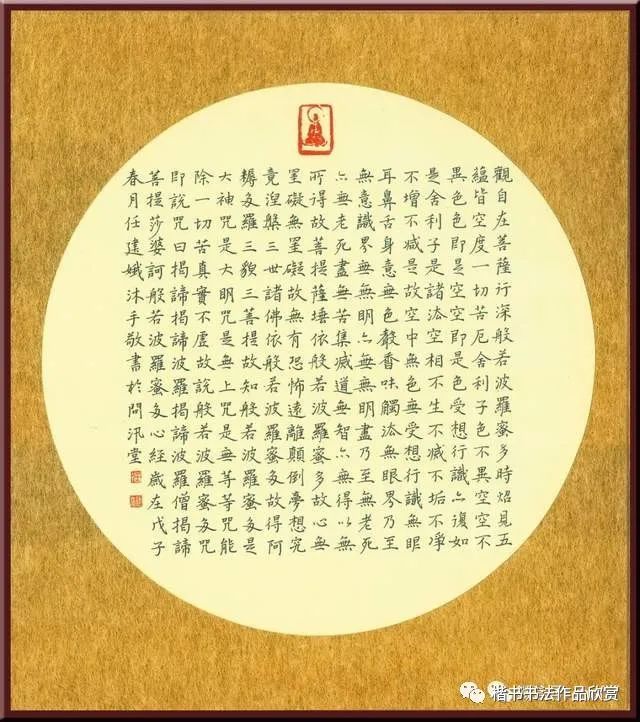 觀自在菩薩行深般若波羅蜜多時炤見五
蘊皆空度一切苦厄舍利子色不異空空不
異色色即是空空即是色受想行識亦復如
是舍利子是諸法空相不生不滅不垢不淨
不增不減是故空中無色無受想行識無眼
耳鼻舌身意無色聲香味觸法無眼界乃至
無意識界無無明亦無無明盡乃至無老死
亦無老死盡無苦集滅道無智亦無得以無
所得故菩提薩埵依般若波羅蜜多故心無
罣礙無罣礙故無有恐怖遠離顛倒夢想究
竟涅槃三世諸佛依般若波羅蜜多故得阿
耨多羅三藐三菩提故知般若波羅蜜多是
大神咒是大明咒是無上咒是無等等咒能
除一切苦真實不虛故說般若波羅蜜多咒
即說咒曰揭諦揭諦波羅揭諦波羅僧揭諦
菩提莎婆訶般若波羅蜜多心經歲在戊子
春月任遠娥沐手敬書於問汛堂
楷书书法作品欣赏